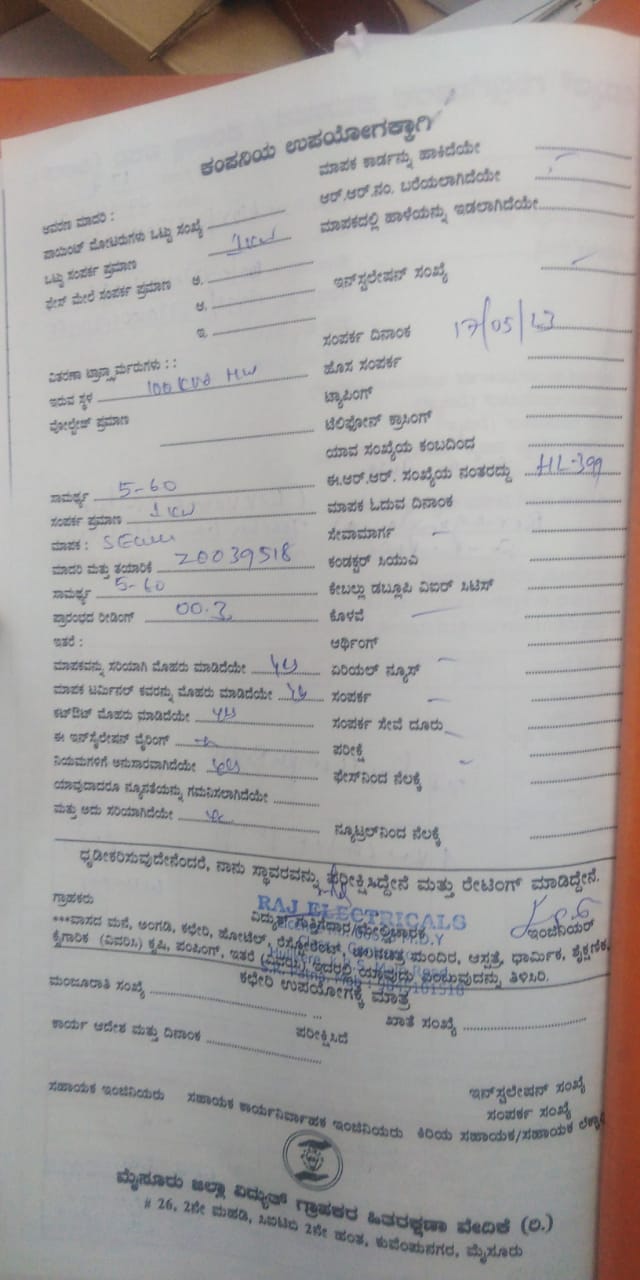 ಕಂಪನಿಯ ಉಪಯೋಗಕ್ಕಾಗಿ
ಆವರಣ ಮಾದರಿ :
ಪಾಯಿಂಟ್ ಮೋಟರುಗಳು ಒಟ್ಟು ಸಂಖ್ಯೆ
ಒಟ್ಟು ಸಂಪರ್ಕ ಪ್ರಮಾಣ 1KW
ಫೇಸ್ ಮೇಲೆ ಸಂಪರ್ಕ ಪ್ರಮಾಣ ಅ.
ಆ.
ಇ.
ವಿತರಣಾ ಟ್ರಾನ್ಸ್ಫಾರ್ಮರುಗಳು : :
ಇರುವ ಸ್ಥಳ 100 KVA
ವೋಲ್ಟೇಜ್ ಪ್ರಮಾಣ
ಸಾಮರ್ಥ್ಯ 5-60
ಸಂಪರ್ಕ ಪ್ರಮಾಣ 1KW
ಮಾಪಕ :
ಮಾದರಿ ಮತ್ತು ತಯಾರಿಕೆ 20039518
ಸಾಮರ್ಥ್ಯ 5-60
ಪ್ರಾರಂಭದ ರೀಡಿಂಗ್ 00.3
ಇತರೆ :
ಮಾಪಕವನ್ನು ಸರಿಯಾಗಿ ಮೊಹರು ಮಾಡಿದೆಯೇ yes
ಮಾಪಕ ಟರ್ಮಿನಲ್ ಕವರನ್ನು ಮೊಹರು ಮಾಡಿದೆಯೇ yes
ಕಟ್‌ಔಟ್ ಮೊಹರು ಮಾಡಿದೆಯೇ yes
ಈ ಇನ್‌ಸ್ಟಲೇಷನ್ ವೈರಿಂಗ್
ನಿಯಮಗಳಿಗೆ ಅನುಸಾರವಾಗಿದೆಯೇ yes
ಯಾವುದಾದರೂ ನ್ಯೂನತೆಯನ್ನು ಗಮನಿಸಲಾಗಿದೆಯೇ
ಮತ್ತು ಅದು ಸರಿಯಾಗಿದೆಯೇ
ಮಾಪಕ ಕಾರ್ಡನ್ನು ಹಾಕಿದೆಯೇ
ಆರ್.ಆರ್.ನಂ. ಬರೆಯಲಾಗಿದೆಯೇ
ಮಾಪಕದಲ್ಲಿ ಹಾಳೆಯನ್ನು ಇಡಲಾಗಿದೆಯೇ
ಇನ್‌ಸ್ಟಲೇಷನ್ ಸಂಖ್ಯೆ
ಸಂಪರ್ಕ ದಿನಾಂಕ 17/05/13
ಹೊಸ ಸಂಪರ್ಕ
ಟ್ಯಾಪಿಂಗ್
ಟೆಲಿಫೋನ್ ಕ್ರಾಸಿಂಗ್
ಯಾವ ಸಂಖ್ಯೆಯ ಕಂಬದಿಂದ
ಈ.ಆರ್.ಆರ್. ಸಂಖ್ಯೆಯ ನಂತರದ್ದು HL-399
ಮಾಪಕ ಓದುವ ದಿನಾಂಕ
ಸೇವಾಮಾರ್ಗ
ಕಂಡಕ್ಟರ್ ಸಿಯುಎ
ಕೇಬಲ್ಲು ಡಬ್ಲೂಪಿ ವಿಐರ್ ಸಿಟಿಸ್
ಕೊಳವೆ
ಆರ್ಥಿಂಗ್
ಏರಿಯಲ್ ನ್ಯೂಸ್
ಸಂಪರ್ಕ
ಸಂಪರ್ಕ ಸೇವೆ ದೂರು
ಪರೀಕ್ಷೆ
ಫೇಸ್‌ನಿಂದ ನೆಲಕ್ಕೆ
ನ್ಯೂಟ್ರಲ್‌ನಿಂದ ನೆಲಕ್ಕೆ
ಧೃಡೀಕರಿಸುವುದೇನೆಂದರೆ, ನಾನು ಸ್ಥಾವರವನ್ನು ಪರೀಕ್ಷಿಸಿದ್ದೇನೆ ಮತ್ತು ರೇಟಿಂಗ್ ಮಾಡಿದ್ದೇನೆ.
RAJ ELECTRICALS
ಗ್ರಾಹಕರು ವಿದ್ಯುತ್ ಗುತ್ತಿಗೆದಾರ/ಮೇಲ್ವಿಚಾರಕ ಇಂಜಿನಿಯರ್
***ವಾಸದ ಮನೆ, ಅಂಗಡಿ, ಕಛೇರಿ, ಹೋಟೆಲ್, ರೆಸ್ಟೋರೆಂಟ್, ಚಲನಚಿತ್ರ ಮಂದಿರ, ಆಸ್ಪತ್ರೆ, ಧಾರ್ಮಿಕ, ಶೈಕ್ಷಣಿಕ,
ಕೈಗಾರಿಕೆ (ವಿವರಿಸಿ) ಕೃಷಿ, ಪಂಪಿಂಗ್, ಇತರೆ (ವಿವರಿಸಿ) ಇದರಲ್ಲಿ ಯಾವುದು ಎಂಬುವುದನ್ನು ತಿಳಿಸಿರಿ.
ಕಛೇರಿ ಉಪಯೋಗಕ್ಕೆ ಮಾತ್ರ
ಮಂಜೂರಾತಿ ಸಂಖ್ಯೆ ಖಾತೆ ಸಂಖ್ಯೆ
ಕಾರ್ಯ ಆದೇಶ ಮತ್ತು ದಿನಾಂಕ ಪರೀಕ್ಷಿಸಿದೆ
ಇನ್‌ಸ್ಟಲೇಷನ್ ಸಂಖ್ಯೆ
ಸಂಪರ್ಕ ಸಂಖ್ಯೆ
ಸಹಾಯಕ ಇಂಜಿನಿಯರು ಸಹಾಯಕ ಕಾರ್ಯನಿರ್ವಾಹಕ ಇಂಜಿನಿಯರು ಕಿರಿಯ ಸಹಾಯಕ/ಸಹಾಯಕ
ಮೈಸೂರು ಜಿಲ್ಲಾ ವಿದ್ಯುತ್ ಗ್ರಾಹಕರ ಹಿತರಕ್ಷಣಾ ವೇದಿಕೆ (ರಿ.)
# 26, 2ನೇ ಮಹಡಿ, ಸಿಐಟಿಬಿ 2ನೇ ಹಂತ, ಕುವೆಂಪುನಗರ, ಮೈಸೂರು